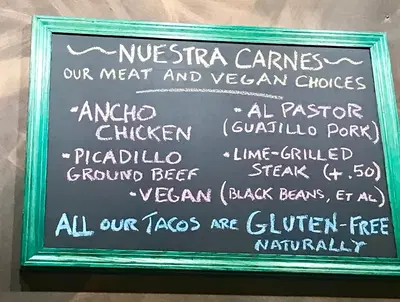 ~NUESTRA CARNES~
OUR MEAT AND VEGAN CHOICES
• ANCHO
CHICKEN
• PICADILLO
GROUND BEEF
• AL PASTOR
(GUAJILLO PORK)
• LIME-GRILLED
STEAK (+.50)
• VEGAN (BLACK BEANS, ET AL)
ALL OUR TACOS ARE GLUTEN-FREE
NATURALLY